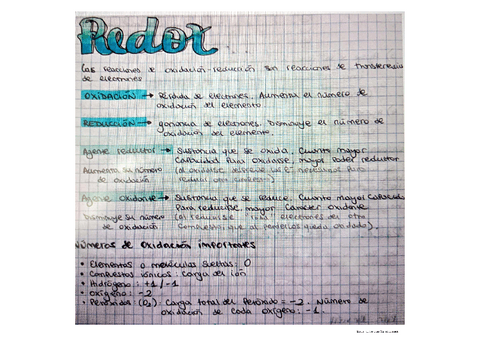 Redox
Las reacciones de oxidación-reducción son reacciones de transferencia
de electrones
OXIDACIÓN → Pérdida de electrones. Aumenta el número de
oxidación del elemento
REDUCCIÓN → ganancia de electrones. Disminuye el número de
oxidación del elemento.
Agente reductor → Sustancia que se oxida. Cuanto mayor
capacidad para oxidarse, mayor poder reductor
Aumenta su número (al oxidarse, para
de oxidación.
Agente oxidante → Sustancia que se reduce. Cuanto mayor capacidad
para reducirse, mayor carácter oxidante
Disminuye su número (al reducirse electrones del otro
de oxidación compuesto, que al perderlos queda oxidado).
Números de oxidación importantes
• Elementos o moléculas sueltas: 0
• Compuestos iónicos: carga del ión
• Hidrógeno: +1/-1
• Oxígeno: -2
• Peróxidos (O₂): Carga total del peróxido = -2. Número de
oxidación de cada oxígeno: -1.